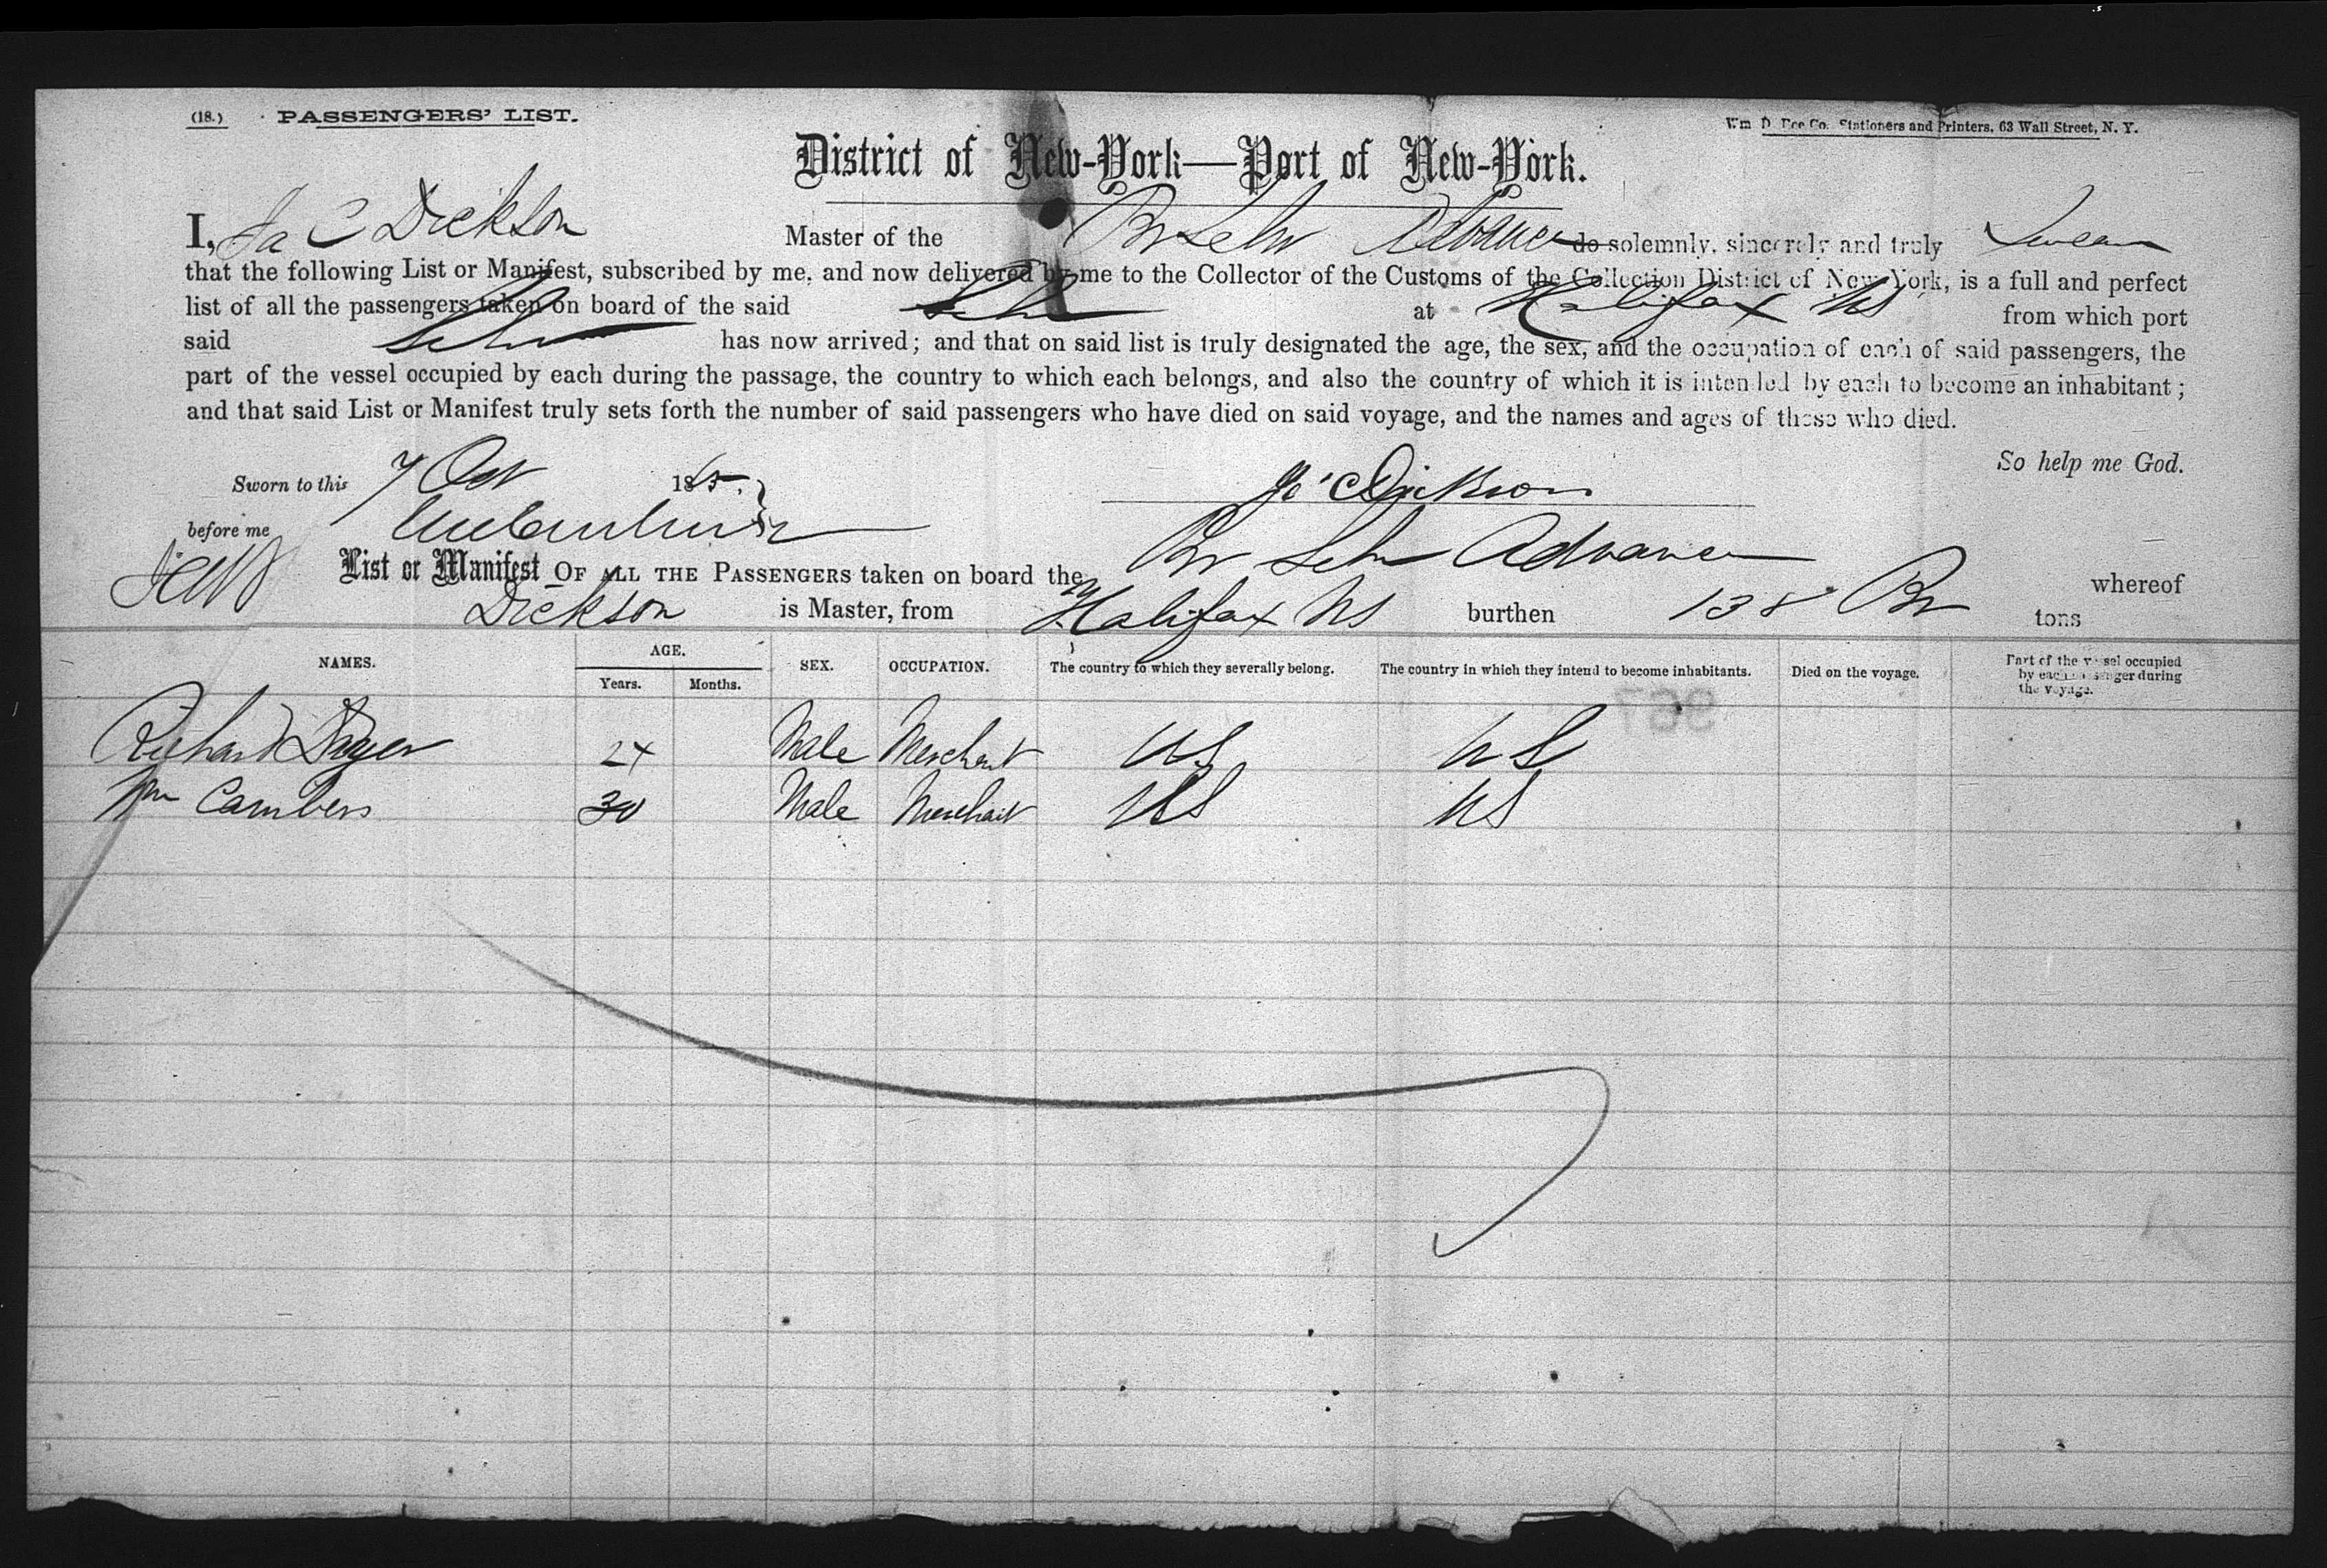 (18.) PASSENGERS' LIST. Wm D. Stationers and Printers, 63 Wall Street, N. Y.
District of New-York—Port of New-York.
I, Ja C Dickson Master of the Br Schr Advance do solemnly, sincerely and truly Swear
that the following List or Manifest, subscribed by me, and now delivered by me to the Collector of the Customs of the Collection District of New York, is a full and perfect
list of all the passengers taken on board of the said Schr at Halifax NS from which port
said Schr has now arrived; and that on said list is truly designated the age, the sex, and the occupation of each of said passengers, the
part of the vessel occupied by each during the passage, the country to which each belongs, and also the country of which it is intended by each to become an inhabitant;
and that said List or Manifest truly sets forth the number of said passengers who have died on said voyage, and the names and ages of those who died.
So help me God.
Sworn to this 7 Oct 1885. Dickson
before me
List or Manifest OF ALL THE PASSENGERS taken on board the Br Schr Advance whereof
Dickson is Master, from Halifax NS burthen 138 Br tons
NAMES. AGE. Years. Months. SEX. OCCUPATION. The country to which they severally belong. The country in which they intend to become inhabitants. Died on the voyage. Part of the vessel occupied by each passenger during the voyage.
967
Richard 24 Male Merchant US US
Wm Cambers 30 Male Merchant US US